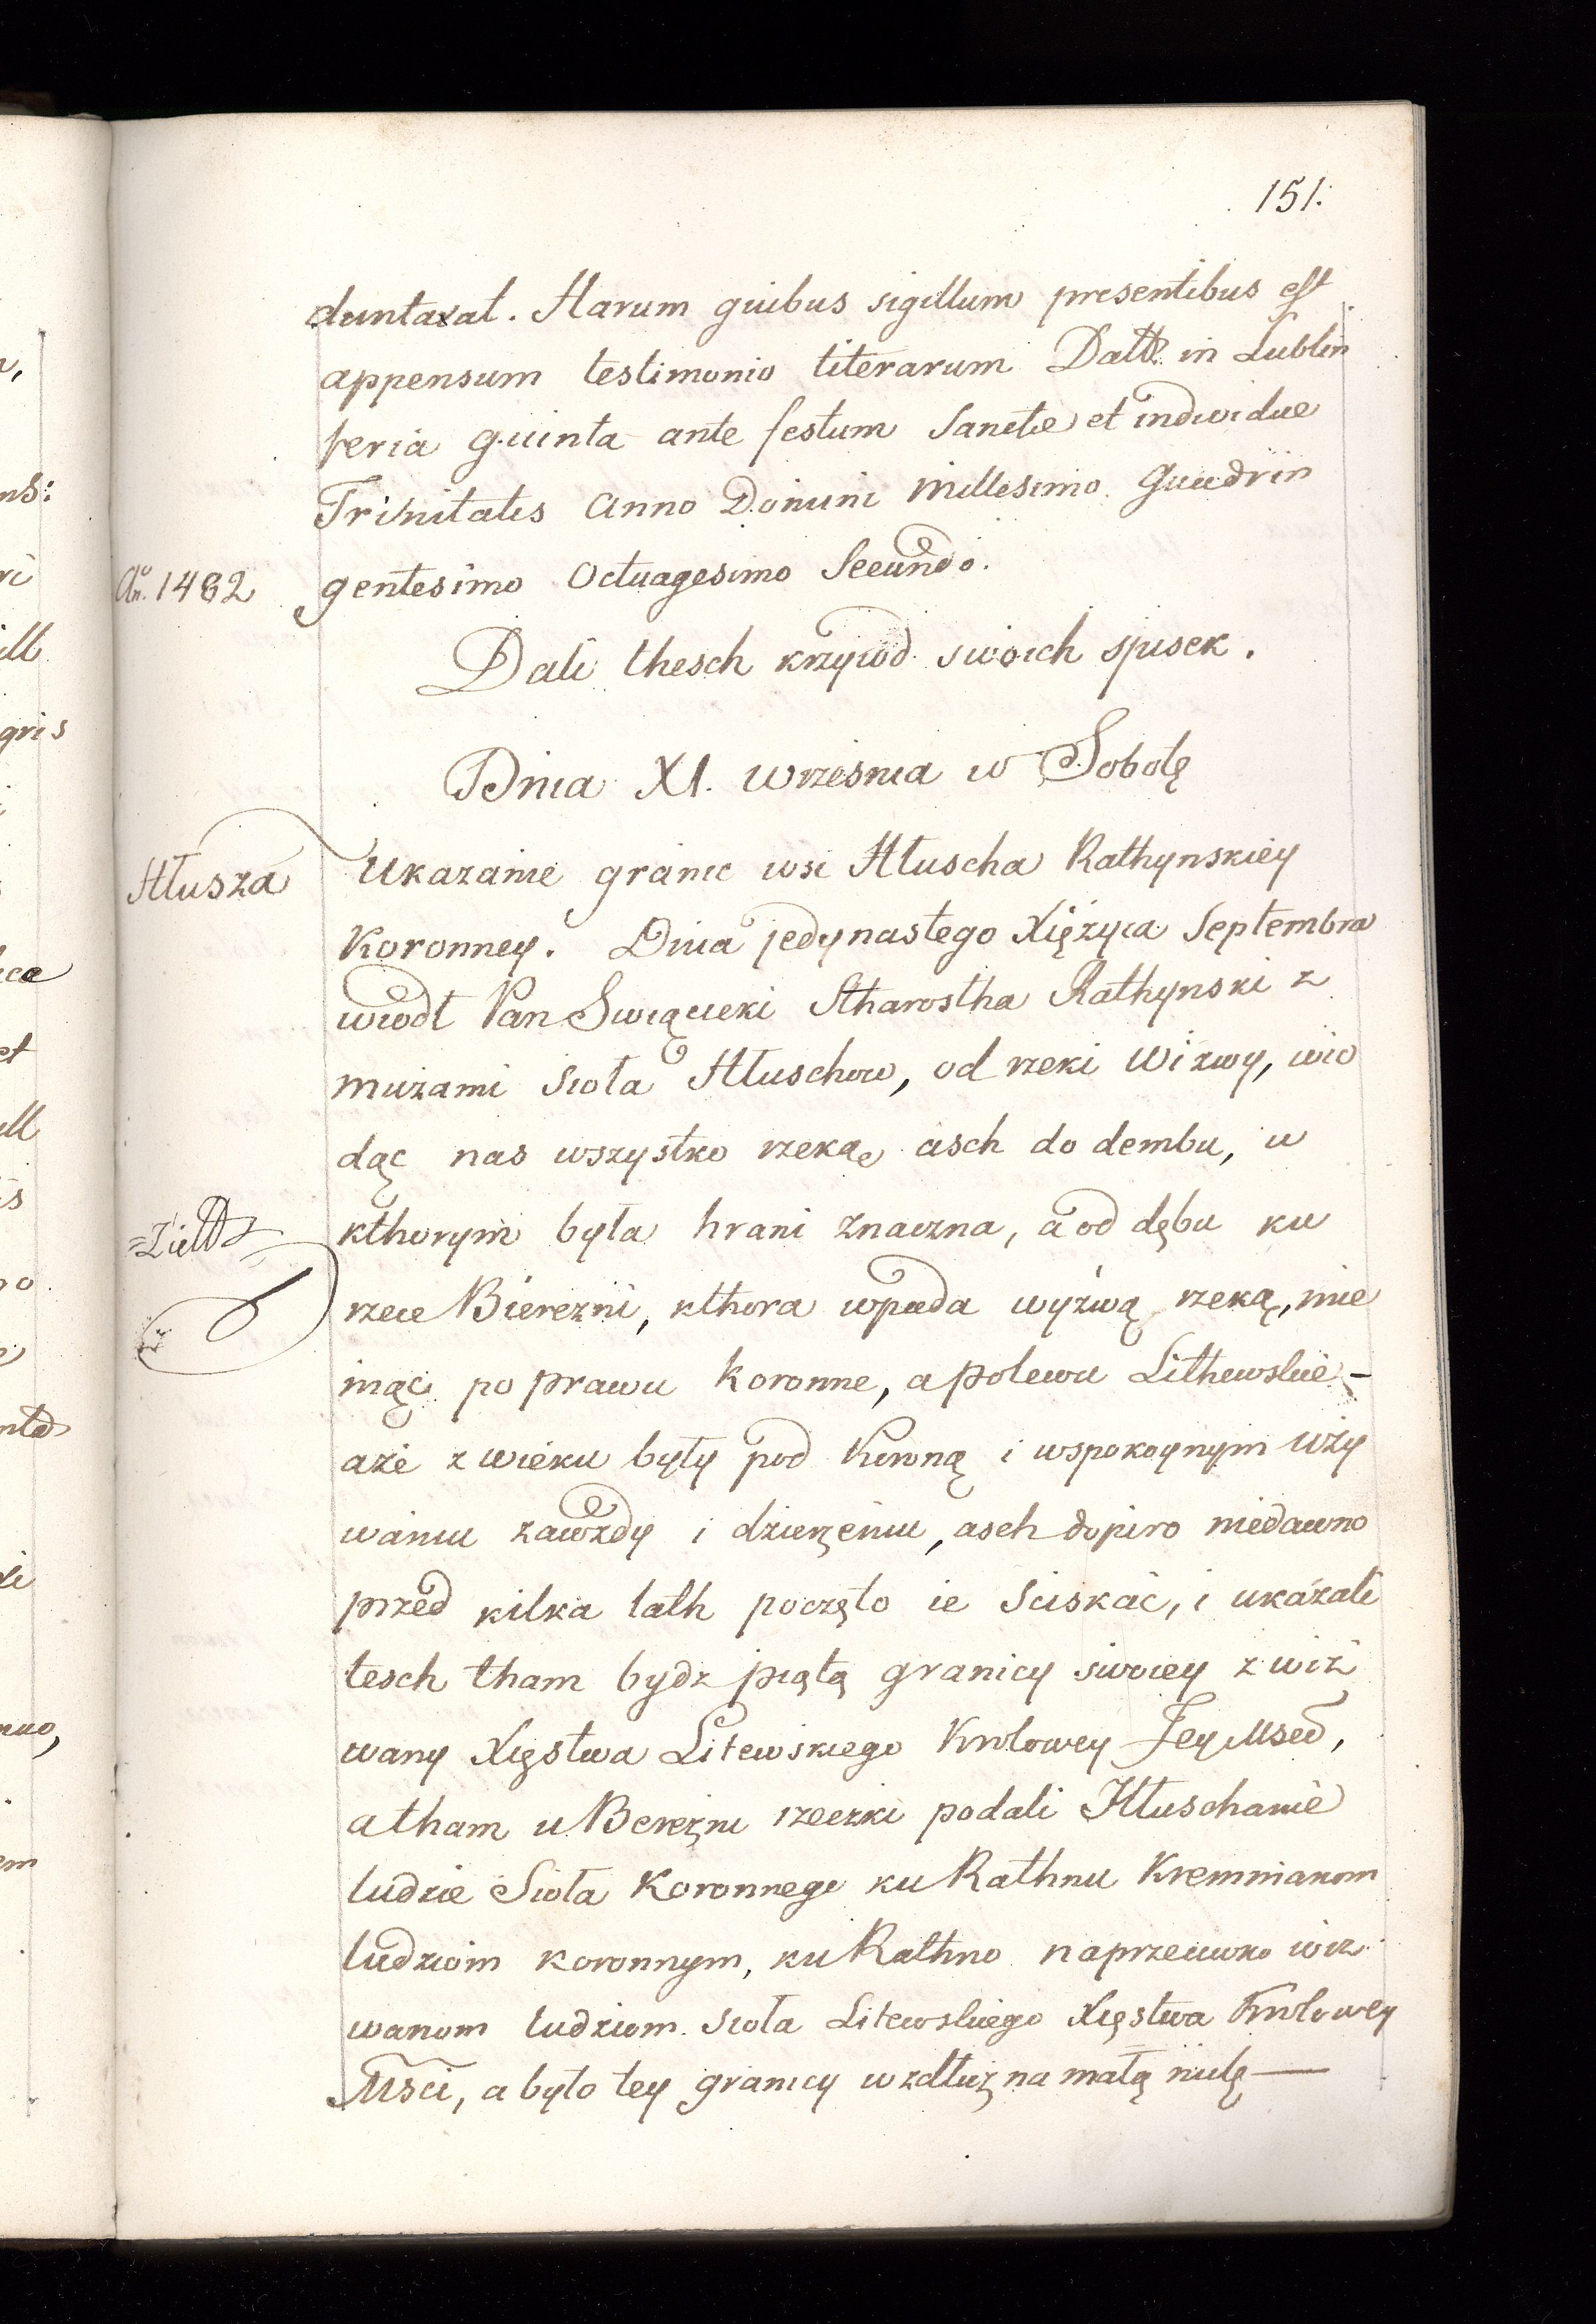 151.
duntaxat. Harum quibus sigillum presentibus est
appensum testimonio literarum Datt. in Lublin
feria quinta ante festum Sancte et individue
Trinitatis Anno Domini Millesimo Quadrin
Aº. 1482 gentesimo Octuagesimo Secundo.
Dali thesch krzywd swoich spisek.
Dnia XI. Wrzesnia w Sobotę
Hłusza Ukazanie granic wsi Hłuscha Rathynskiey
Koronney. Dnia jedynastego Xiężyca Septembra
wiodł Pan Swiącicki Stharostha Rathynski z
mużami sioła Hłuschow, od rzeki Wizwy, wio
dąc nas wszystko rzeką asch do dembu, w
kthorym była hrani znaczna, a od dębu ku
rzece Bierezni, kthora wpada wyżwą rzeką, mie
niąc po prawu Koronne, a polewu Lithewskie –
aże z wieku były pod Koroną i wspokoynym uży
waniu zawżdy i dzierżeniu, asch dopiro niedawno
przed kilka lath poczęto ie sciskać, i ukazali
tesch tham bydz piątą granicy swoiey z wiż
wany Xięstwa Litewskiego Krolowey Jey Msci,
a tham u Bereźni rzeczki podali Hłuschanie
ludzie Sioła Koronnego ku Rathnu Kremnianom
ludziom koronnym, ku Rathno naprzeciwko wiz
wanom ludziom sioła Litewskiego Xięstwa Krolowey
Msci, a było tey granicy wzdłuż na małą milę —